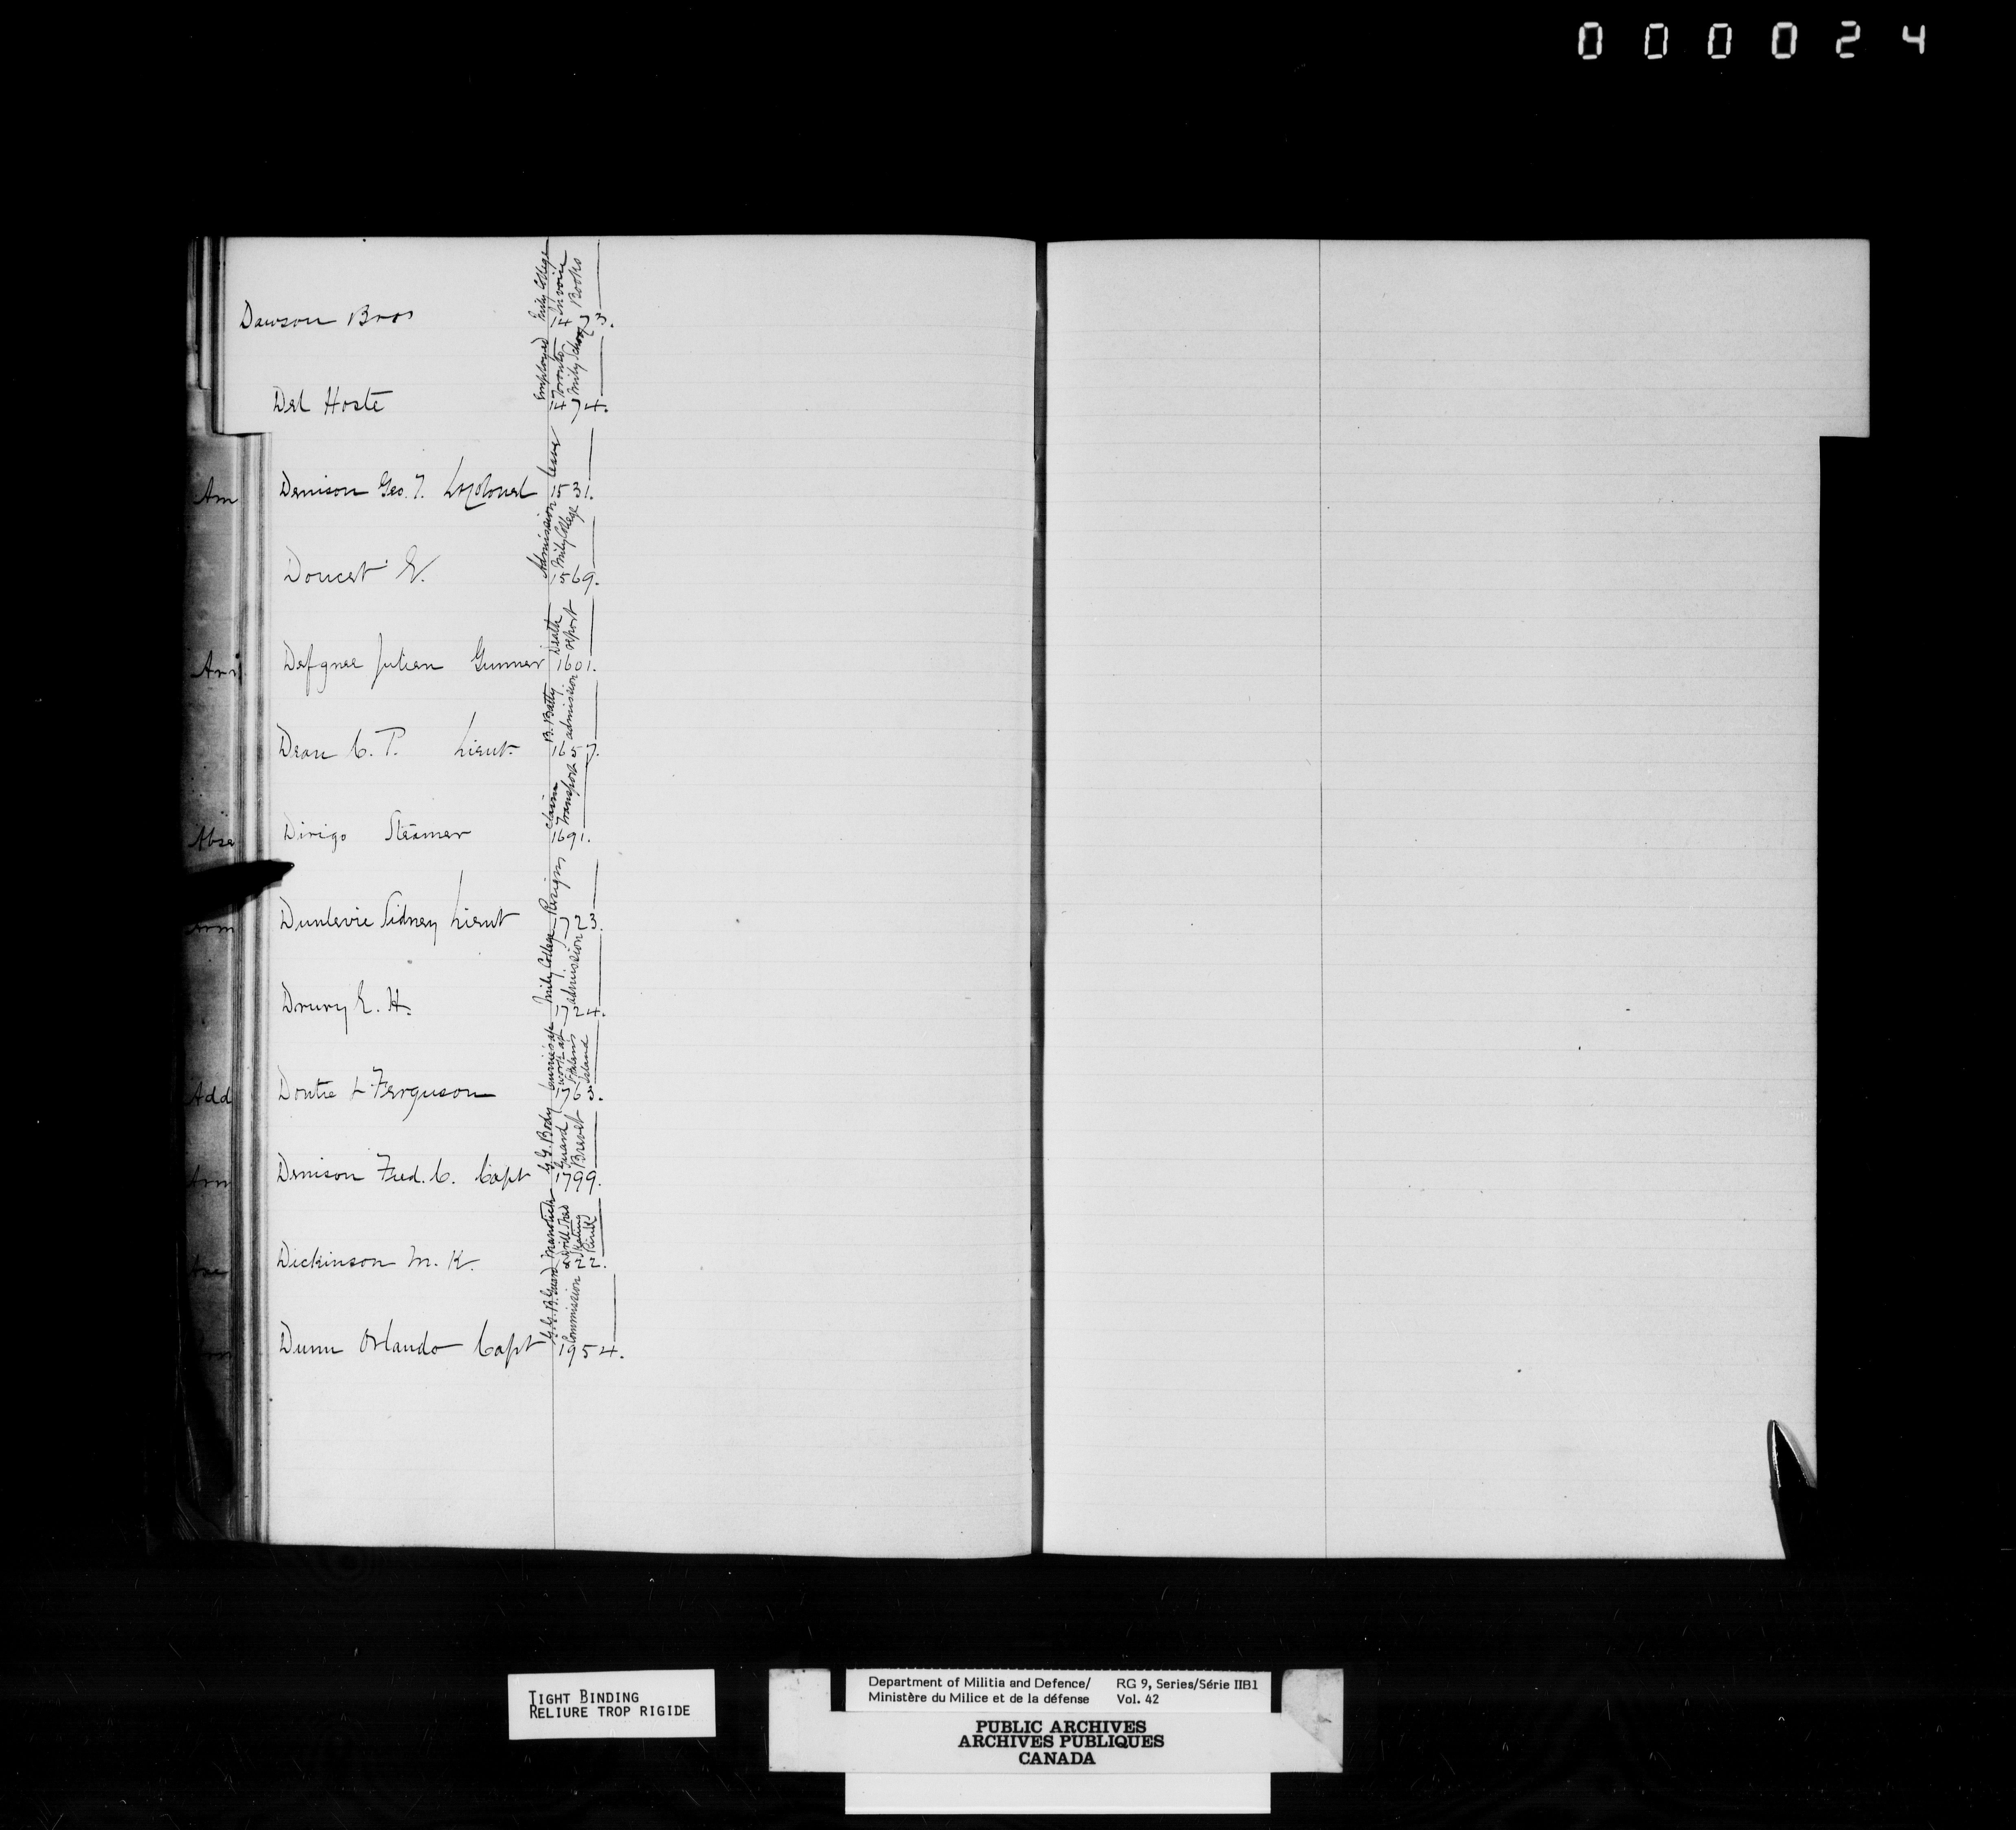 000024
Dawson Bros
Mily College
Invoice
Books
1473.
Del Hoste
Employed
Toronto
Mily School
1474.
Am
Denison Geo. T. Lt Colonel
Leave
1531.
Doucet E.
Admission
Mily College
1569.
Gunner
Death
report
1601.
Dean C. T. Lieut.
B. Batty
admission
1657.
Abse
Dirigo Steamer
Claim
Transport
1691.
Dunlevie Sidney Lieut
Resigns
1723.
Drury E. H.
Mily College
admission
1724.
Add
Doutre & Ferguson
work at
Island
1763.
Arm
Denison Fred. C. Capt
G. G. Body
Guard
Brevet
1799.
Dickinson M. K.
Manotick
Drill Shed
Skating
Rink
Dunn Orlando Capt
G. G. B. Guard
Commission
1954.
TIGHT BINDING
RELIURE TROP RIGIDE
Department of Militia and Defence/ RG 9, Series/Série IIB1
Ministère du Milice et de la défense Vol. 42
PUBLIC ARCHIVES
ARCHIVES PUBLIQUES
CANADA